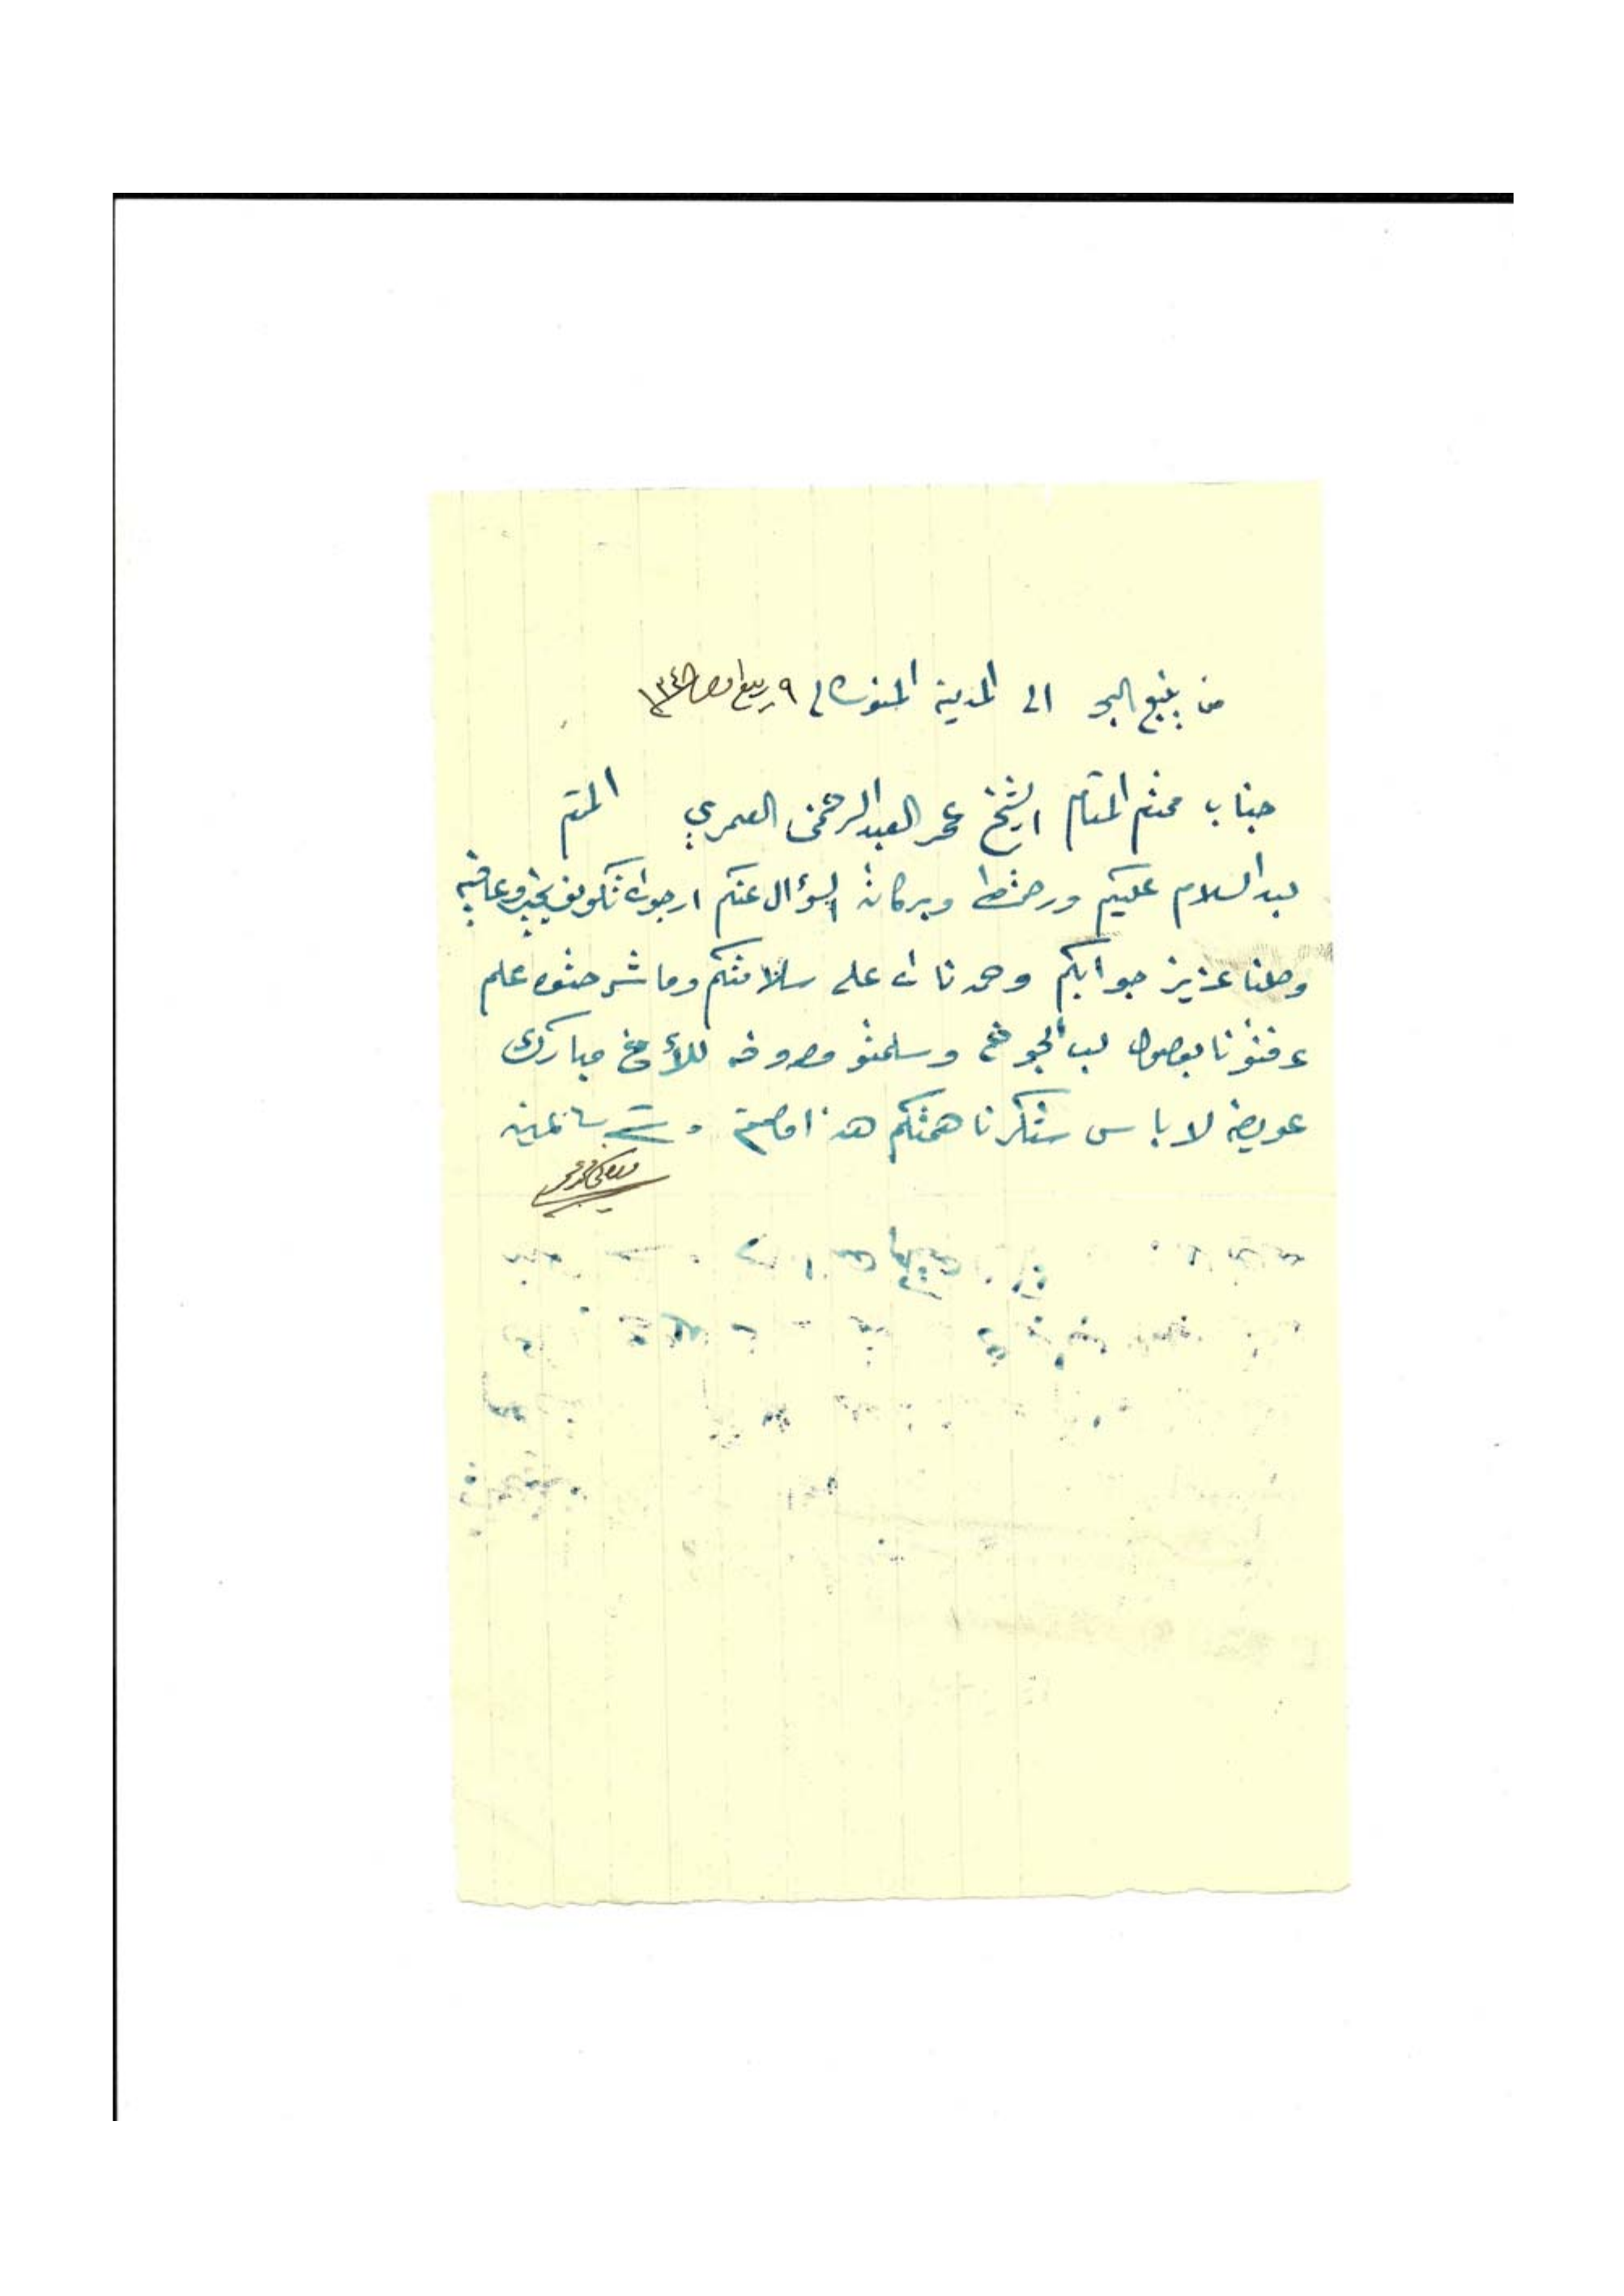 من ينبع البحر الى المدينة المنورة في ٩ ربيع اول ١٣٤٨
جناب محترم المقام الشيخ عمر العبدالرحمن العمري المحترم
بعد السلام عليكم ورحمة الله وبركاته السؤال عنكم ارجو الله تكونو بخير وعافيه
وصلنا عزيز جوابكم وحمدنا الله على سلامتكم وما شرحتوه علم
عرفتونا بوصول الجوخ وسلمتو مصروفه للأخ مبارك
عويضه لا باس شكرنا همتكم هذا ما لزم ودمتم سالمين